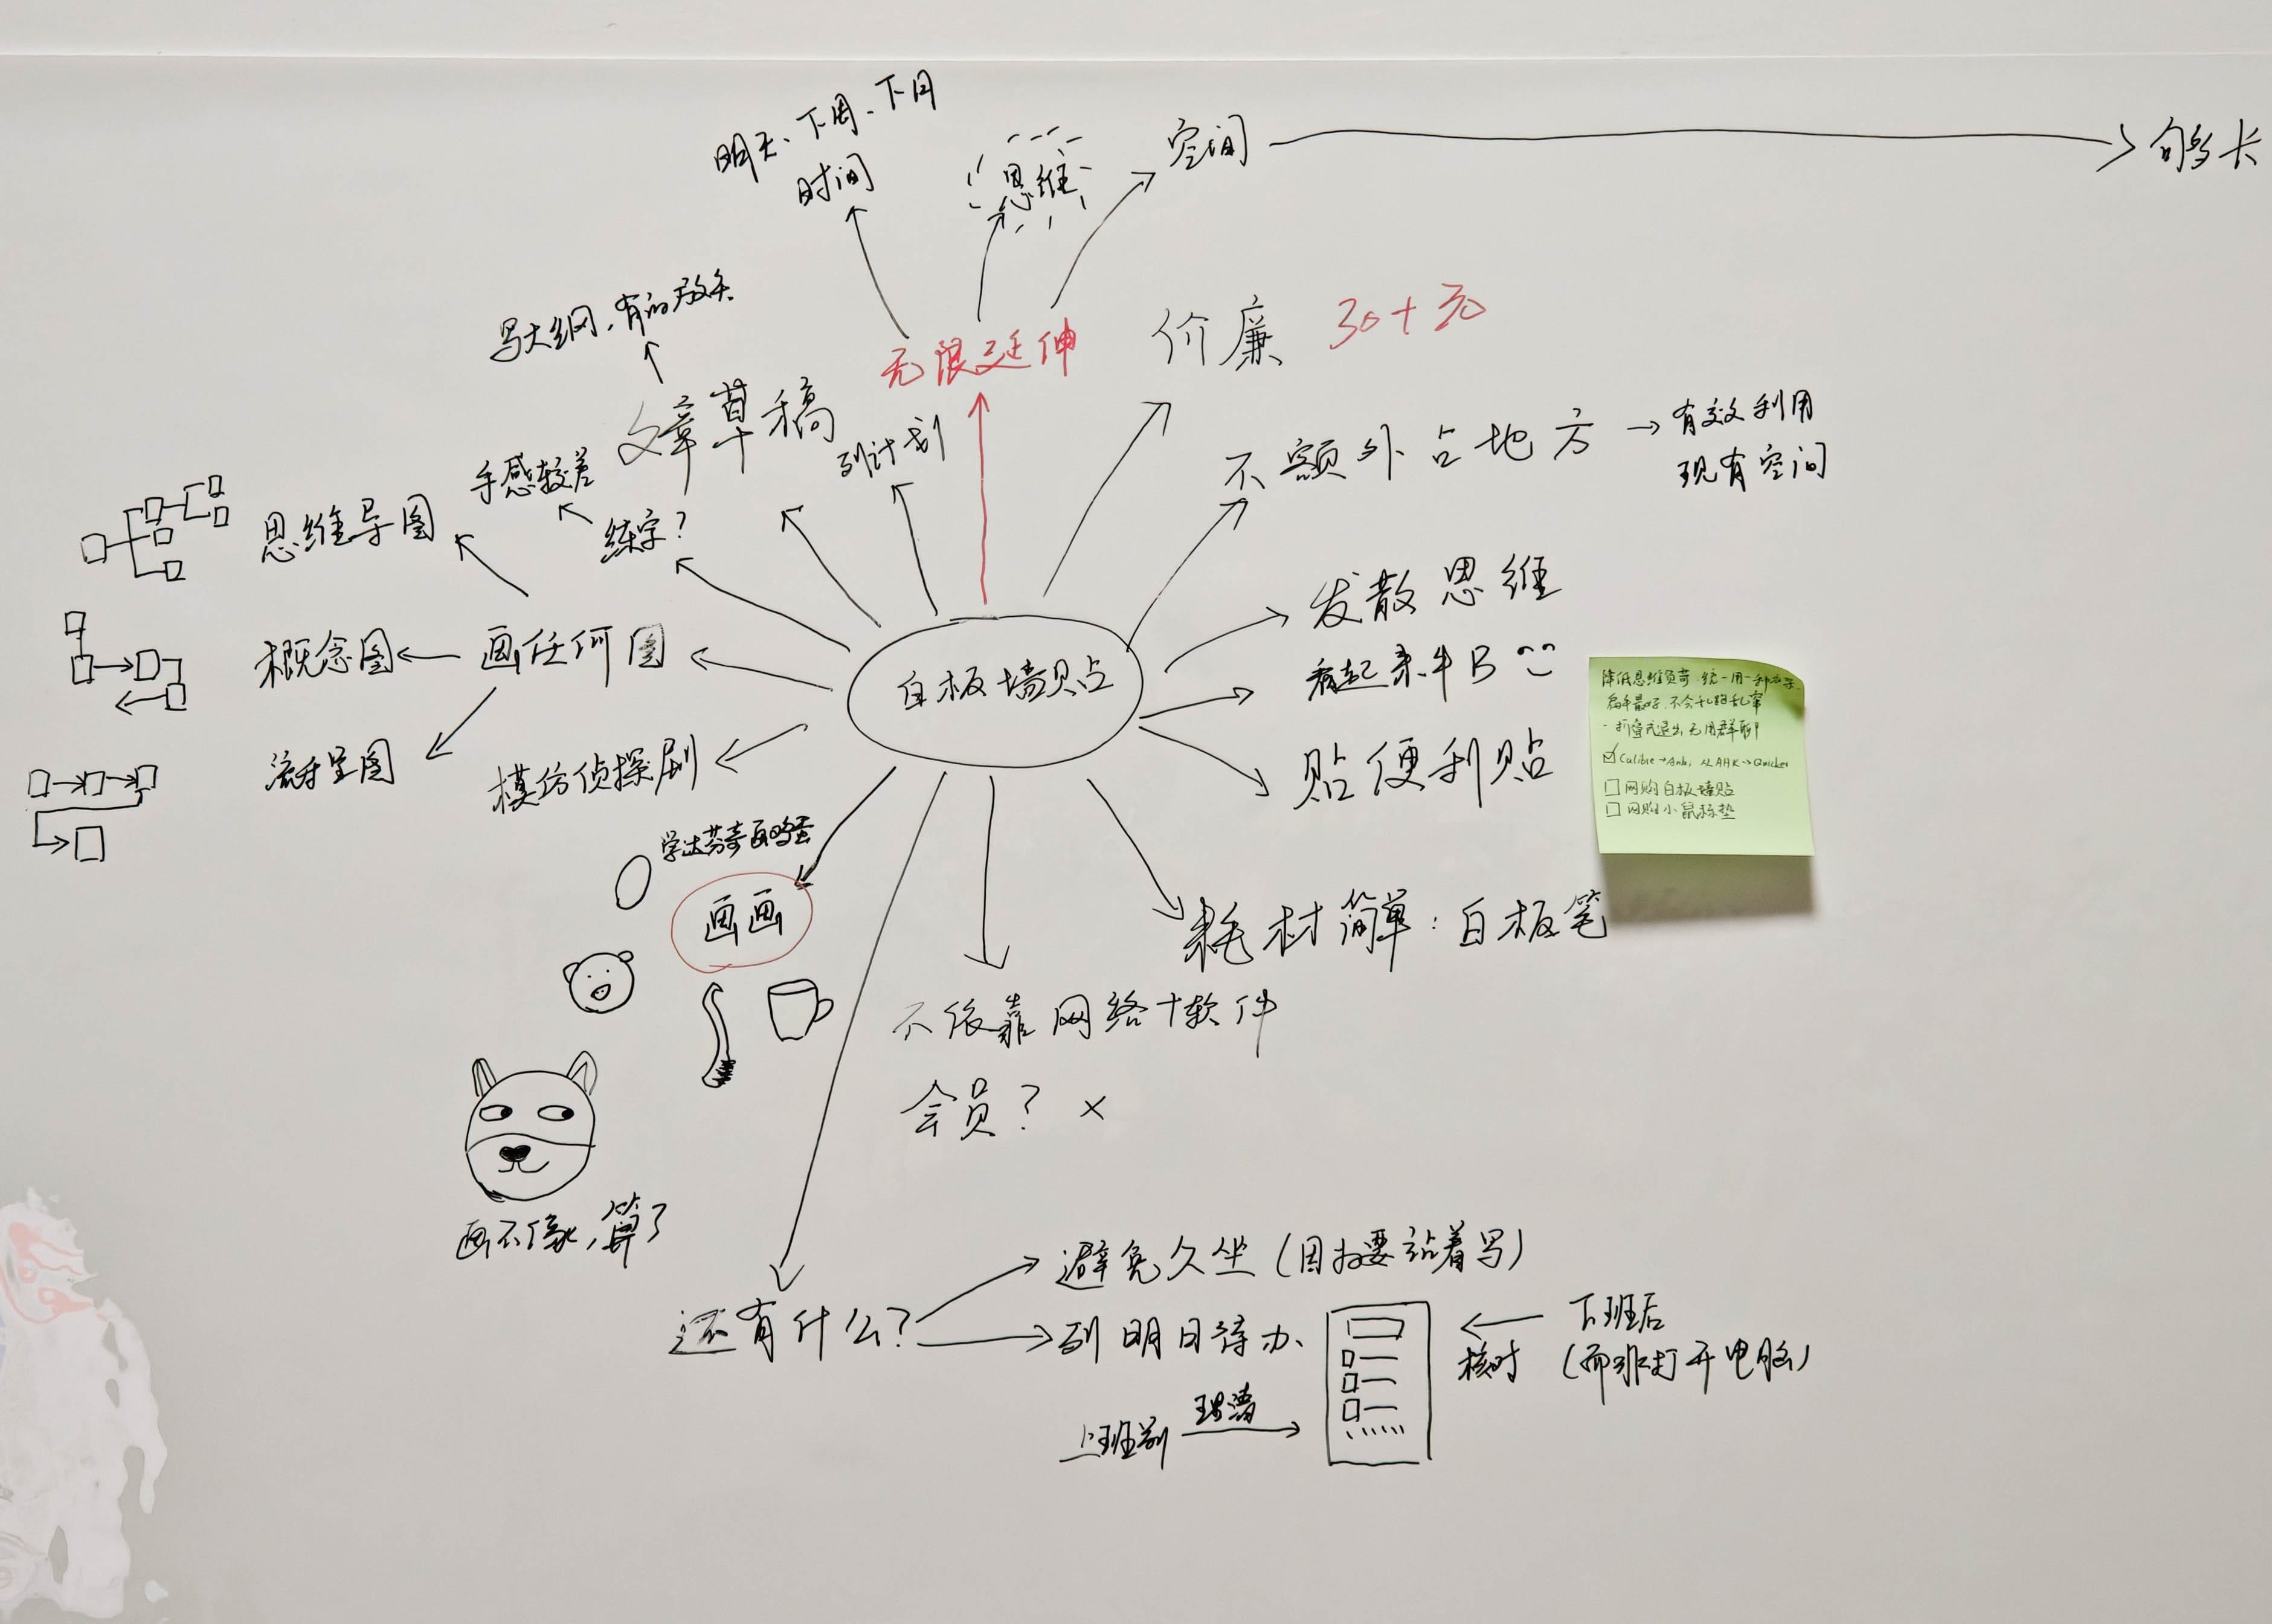 明天、下周、下月
时间
思维
空间
够长
写大纲，有的放矢
无限延伸
价廉 30+元
文章草稿
列计划
不额外占地方
有效利用
现有空间
手感较差
练字？
思维导图
发散思维
概念图
画任何图
白板墙贴
看起来牛B
流程图
模仿侦探剧
贴便利贴
降低思维负荷
统一用一种
不会乱跑乱窜
Calibre→Anki, 从AHK→Quicker
网购白板墙贴
网购小鼠标垫
学达芬奇画鸡蛋
画画
耗材简单：白板笔
不依靠网络+软件
会员？×
画不像，算了
还有什么？
避免久坐（因为要站着写）
列明日待办
下班后
核对
（而非打开电脑）
上班前
理清